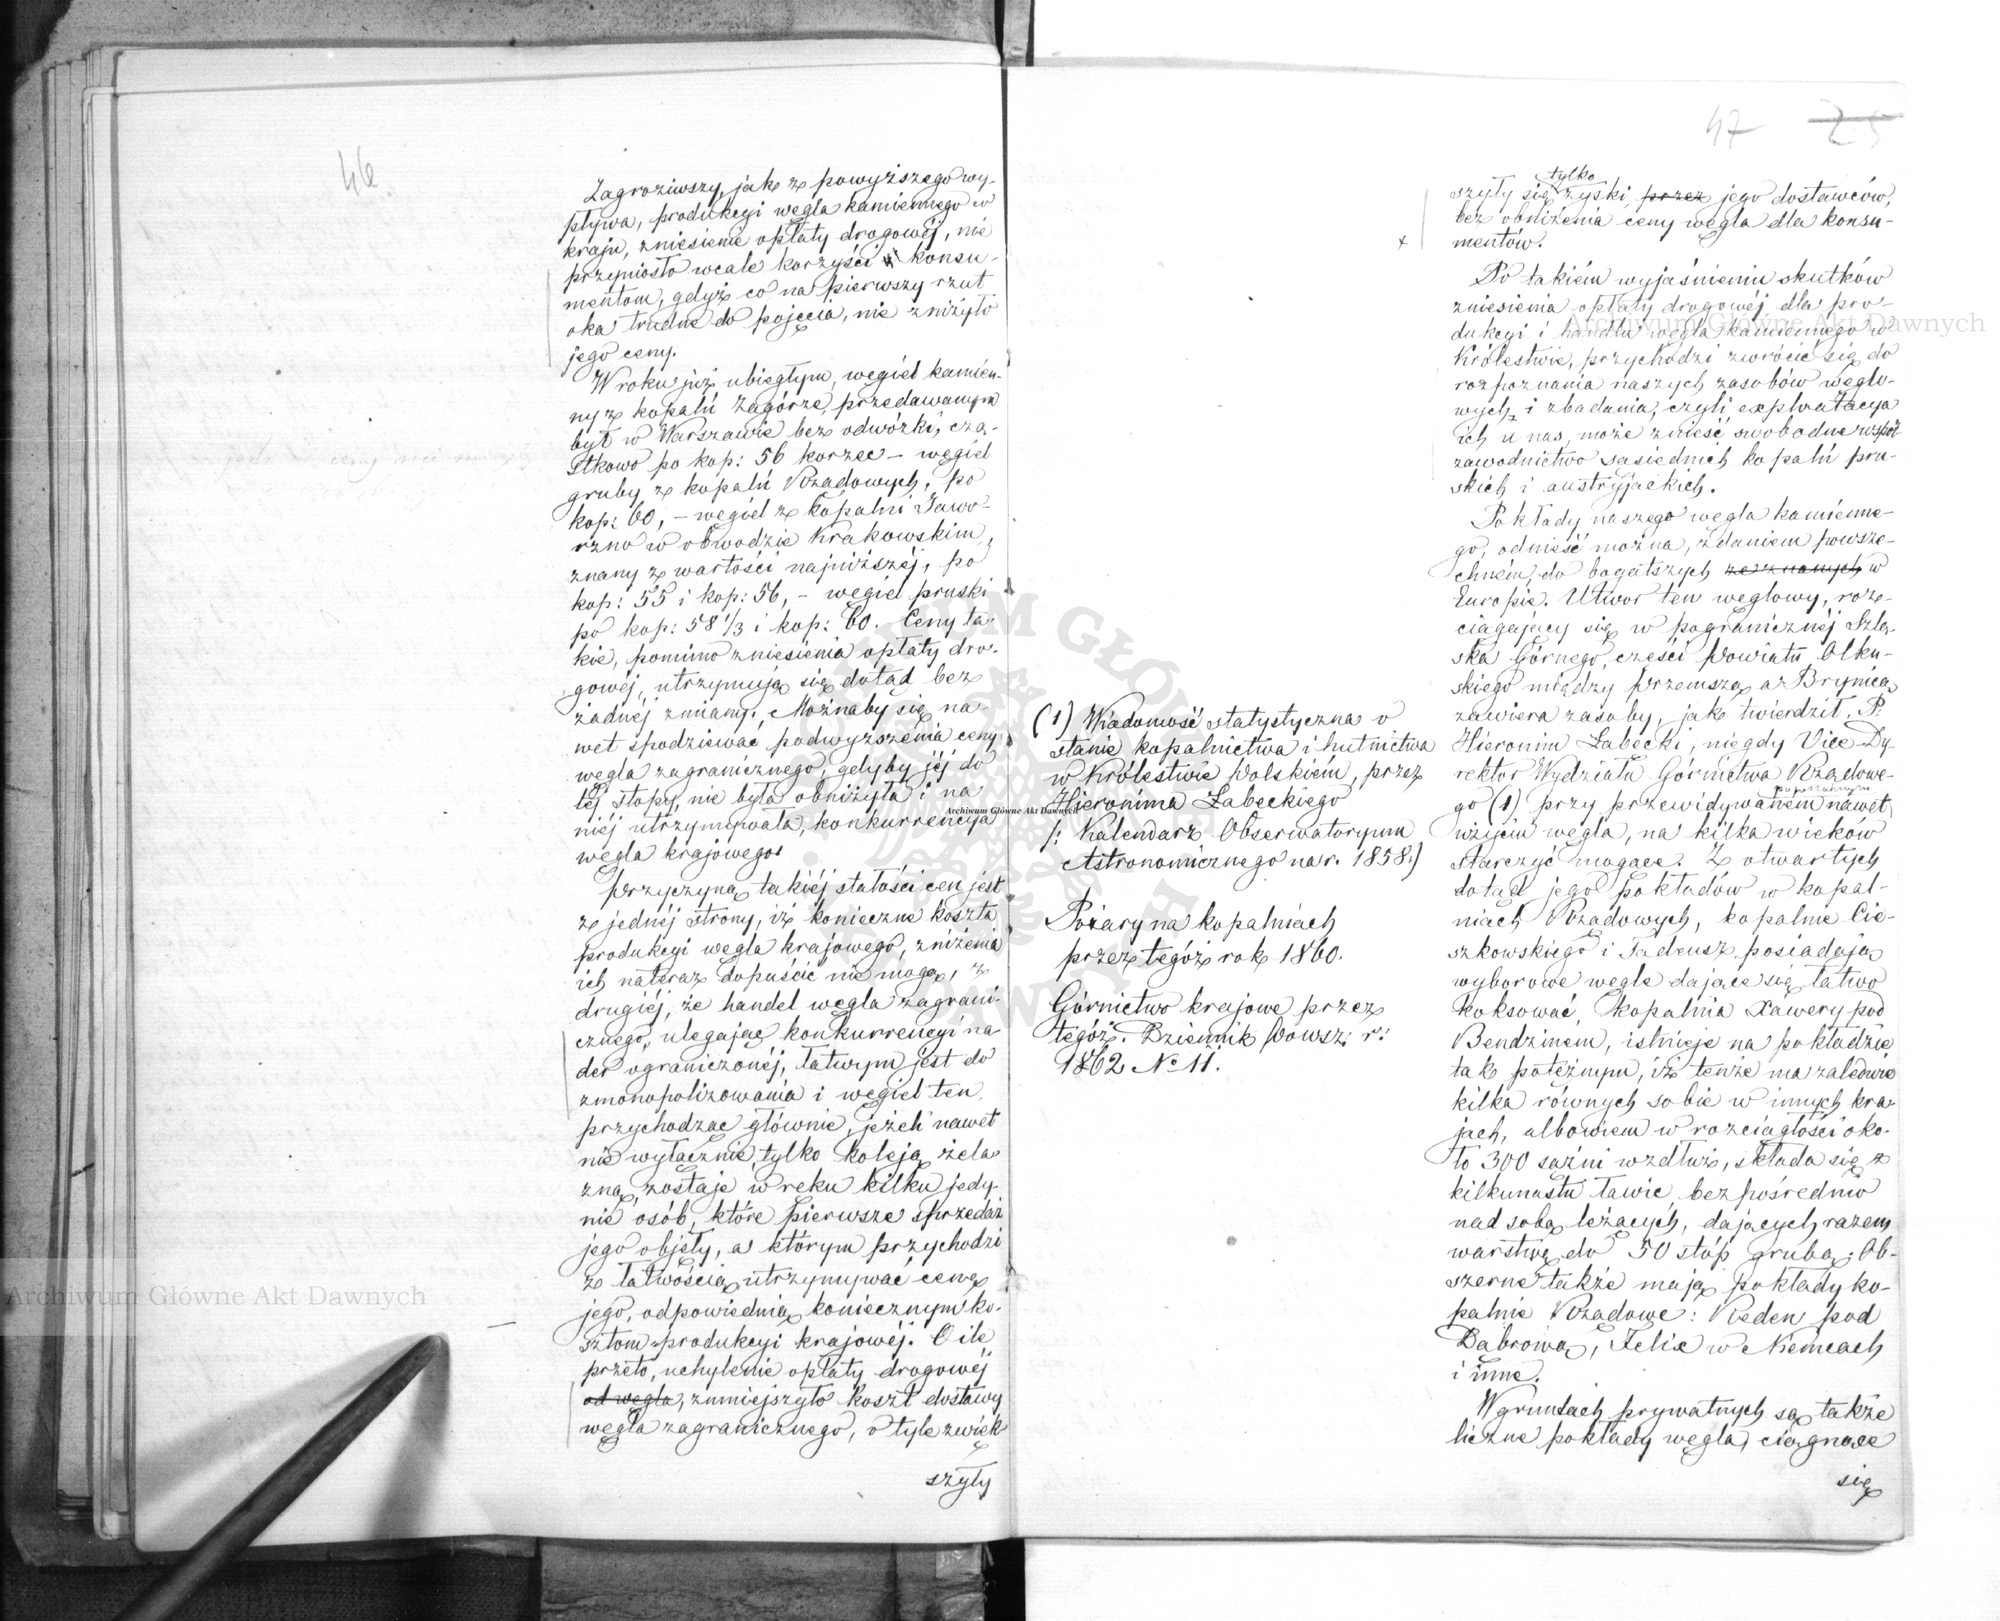 46
Zagroziwszy, jak z powyższego wy-
pływa, produkcyi węgla kamiennego w
kraju, zniesienie opłaty drogowéj, nie
przyniosło wcale korzyści konsu-
mentom, gdyż co na pierwszy rzut
oka trudne do pojęcia, nie zniżyło
jego ceny.
W roku już ubiegłym, węgiel kamien-
ny z kopalń Zagórze, przedawanym
był w Warszawie bez odwózki, czą-
stkowo po kop: 56 korzec – węgiel
gruby z kopalń Rządowych, po
kop: 60, – węgiel z kopalni Jawo-
rzno w obwodzie Krakowskim,
znany z wartości najniższéj, po
kop: 55 i kop: 56, – węgiel pruski
po kop: 58 1/3 i kop: 60. Ceny ta-
kie, pomimo zniesienia opłaty dro-
gowéj, utrzymują się dotąd bez
żadnéj zmiany. Możnaby się na-
wet spodziewać podwyższenia ceny
węgla zagranicznego, gdyby jéj do
téj stopy, nie była obniżyła i na
niéj utrzymywała, konkurrencya
węgla krajowego.
Przyczyną takiéj stałości cen jest
z jednéj strony, iż konieczne koszta
produkcyi węgla krajowego, zniżenia
ich nateraz dopuścić nie mogą, z
drugiéj, że handel węgla zagrani-
cznego, ulegając konkurrencyi na-
der ograniczonéj, łatwym jest do
zmonopolizowania i węgiel ten,
przychodząc głównie, jeżeli nawet
nie wyłącznie, tylko koleją żela-
zną, zostaje w ręku kilku jedy-
nie osób, które pierwsze sprzedaż
jego objęły, a którym przychodzi
z łatwością utrzymywać cenę
jego, odpowiednią koniecznym ko-
sztom produkcyi krajowéj. O ile
przeto, uchylenie opłaty drogowéj
od węgla, zmniejszyło koszt dostawy
węgla zagranicznego, o tyle zwięk-
szyły
47 25
tylko
szyły się zyski przez jego dostawców,
bez obniżenia ceny węgla dla konsu-
mentów.
Po takiém wyjaśnieniu skutków
zniesienia opłaty drogowéj dla pro-
dukcyi i handlu węgla kamiennego w
Królestwie, przychodzi zwrócić się do
rozpoznania naszych zasobów węglo-
wych i zbadania, czyli exploatacya
ich u nas, może znieść swobodne współ-
zawodnictwo sąsiednich kopalń pru-
skich i austryjackich.
Pokłady naszego węgla kamienne-
go, odnieść można, zdaniem powsze-
chném, do bogatszych ze znanych w
Europie. Utwór ten węglowy, roz-
ciągający się w pogranicznéj Szlą-
ska Górnego, części Powiatu Olku-
skiego między Przemszą a Brynicą
zawiera zasoby, jak twierdził P.
Hieronim Łabęcki, niegdy Vice-Dy-
rektor Wydziału Górnictwa Rządowe-
go (1) przy przewidywaném nawet
użyciu węgla, na kilka wieków
starczyć mogące. Z otwartych
dotąd jego pokładów w kopal-
niach Rządowych, kopalnie Cie-
szkowskiego i Tadeusz posiadają
wyborowe węgle dające się łatwo
koksować. Kopalnia Xawery pod
Bendzinem, istnieje na pokładzie
tak potężnym, iż tenże ma zaledwie
kilka równych sobie w innych kra-
jach, albowiem w rozciągłości oko-
ło 300 sążni wzdłuż, składa się z
kilkunastu ławic bezpośrednio
nad sobą leżących, dających razem
warstwę do 50 stóp grubą. Ob-
szerne także mają pokłady ko-
palnie Rządowe: Reden pod
Dąbrową, Felix w Niemcach
i inne.
W gruntach prywatnych są także
liczne pokłady węgla, ciągnące
się
(1) Wiadomość statystyczna o
stanie kopalnictwa i hutnictwa
w Królestwie Polskiém, przez
Hieronima Łabęckiego
/: Kalendarz Obserwatoryum
Astronomicznego na r. 1858.)
Pożary na kopalniach
przez tegóż rok 1860.
Górnictwo krajowe przez
tegóż. Dziennik Powsz: r:
1862 No 11.
Archiwum Główne Akt Dawnych
Archiwum Główne Akt Dawnych
Archiwum Główne Akt Dawnych